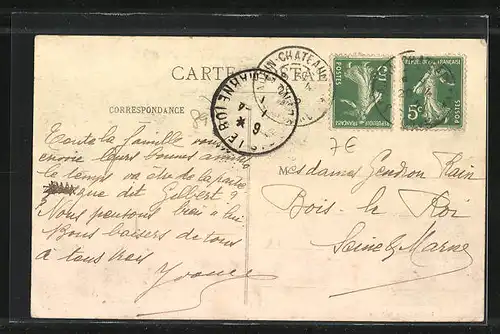 CARTE POSTALE
CORRESPONDANCE
Toute la famille vous
envoie leurs bonnes amitiés
le temps va de la partie
que dit Gilbert ?
Nous pensons bien à lui
Bons baisers de tous
à tous trois
Yvonne
REPUBLIQUE FRANÇAISE
POSTES
5c
REPUBLIQUE FRANÇAISE
POSTES
5c
7€
Mesdames Gendron Rain
Bois le Roi
Seine & Marne